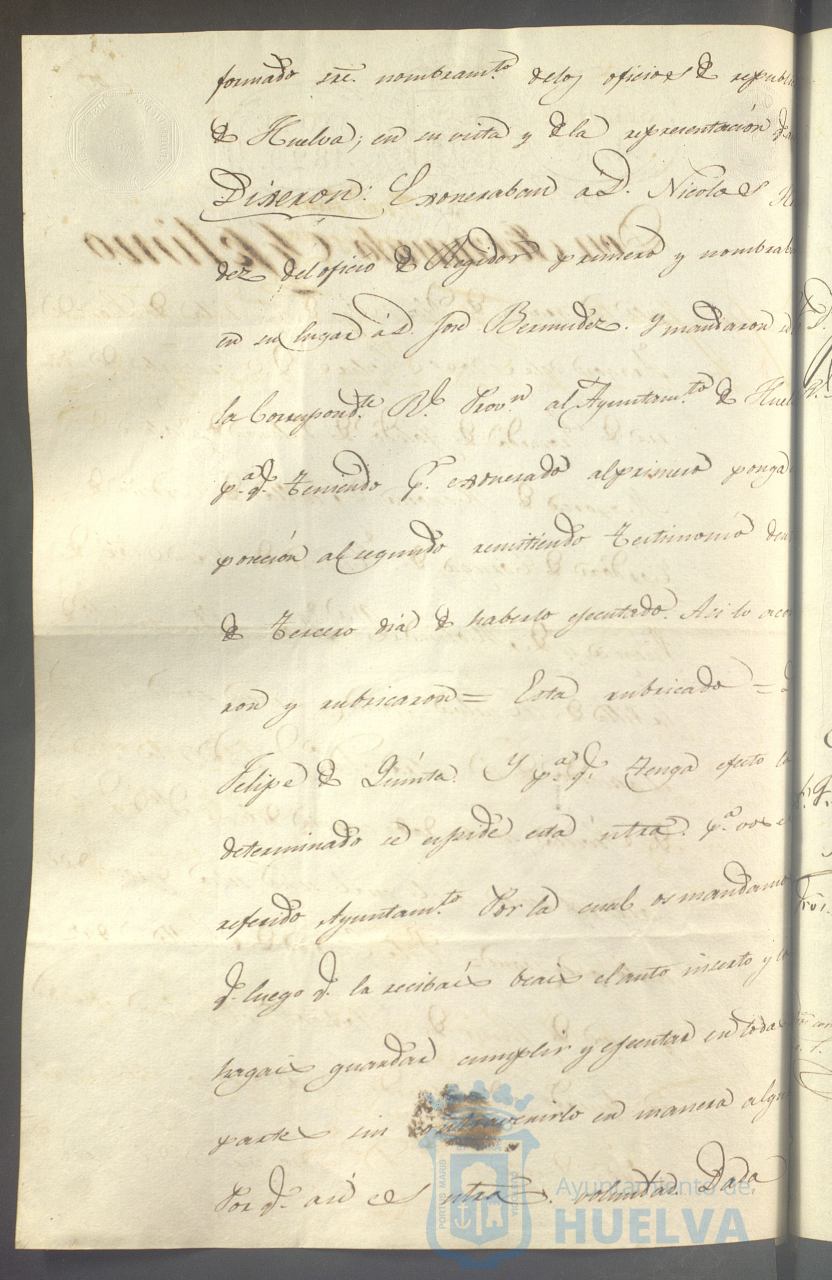 formado sre. nombramto. delos oficios de republi
de Huelva; en su vista y de la representación
Dixeron: Exoneraban a D. Nicolas
dez del oficio de Regidor primero y nombrab
en su lugar a D. José Bermudez. Y mandaron
la Correspondte. Rl. Provn al Ayuntamto. de Huel
pa. q. teniendo pr. exonerado al primero ponga
poseción al segundo remitiendo testimonio
de tercero dia de haberlo ejecutado. Asi lo aco
ron y rubricaron = Esta rubricado =
Felipe de Quinta. Y pa. q. tenga efecto lo
determinado se espide esta ntra. pa. vos el
referido Ayuntamto. Por la cual os mandamo
q. luego q. la recibais beais el auto inserto y lo
hagais guardar cumplir y ejecutar en toda
parte sin contravenirlo en manera algu
Por q. asi es ntra. voluntad. Dada
PORTUS MARIS
Ayuntamiento de
HUELVA